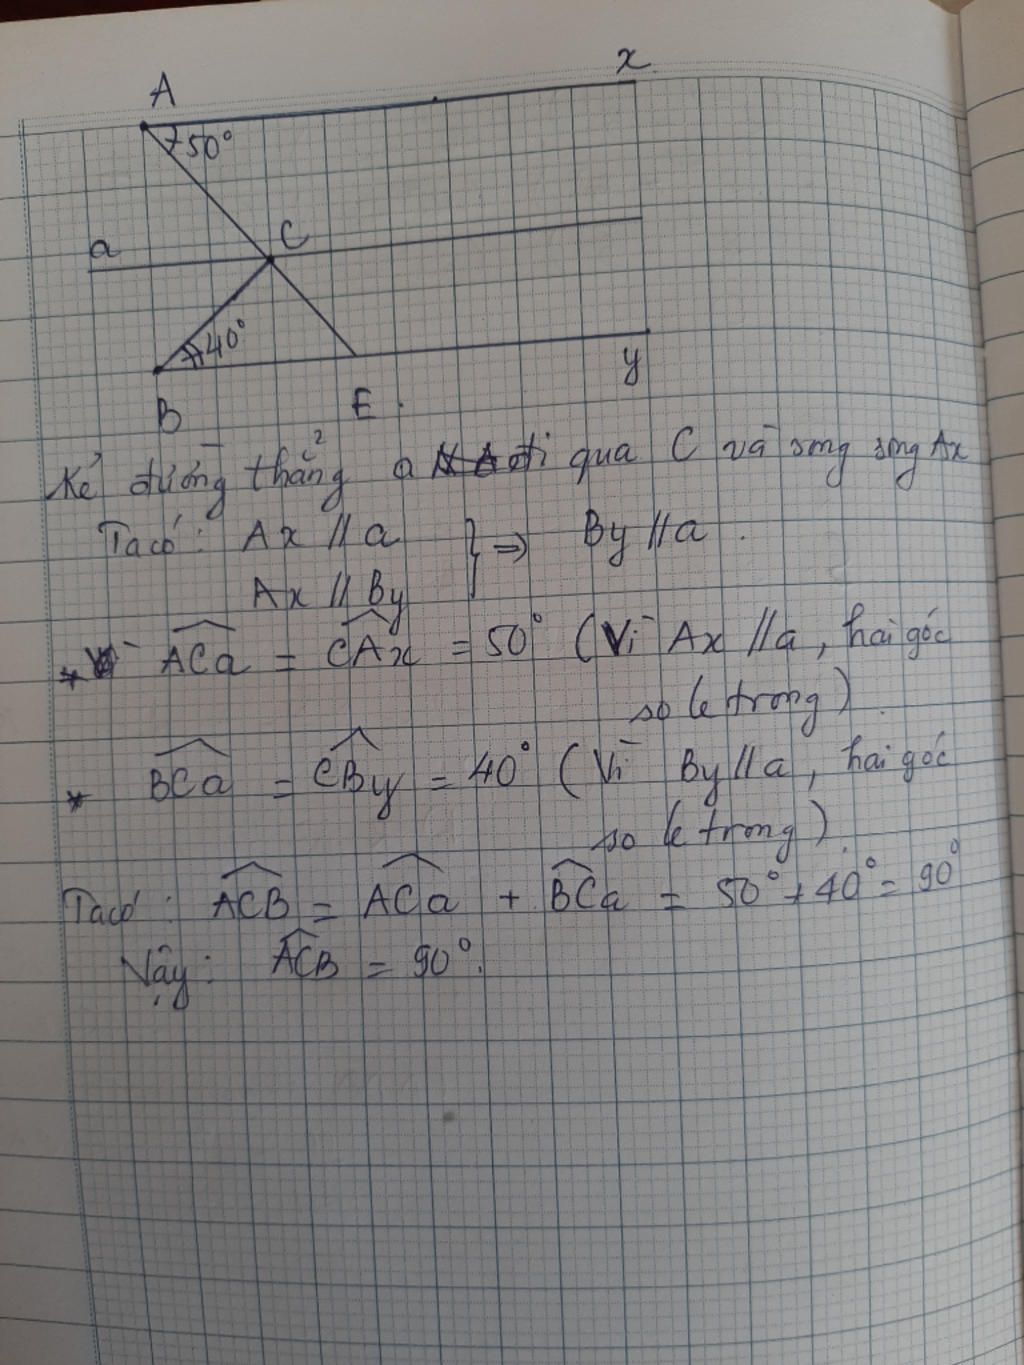 A
x
50°
a
C
40°
B
E
y
Kẻ đường thẳng a đi qua C và song song Ax
Ta có: Ax // a
Ax // By } => By // a.
* ACa = CAx = 50° (Vì Ax // a, hai góc
so le trong).
* BCa = CBy = 40° (Vì By // a, hai góc
so le trong).
Ta có: ACB = ACa + BCa = 50° + 40° = 90°
Vậy: ACB = 90°.